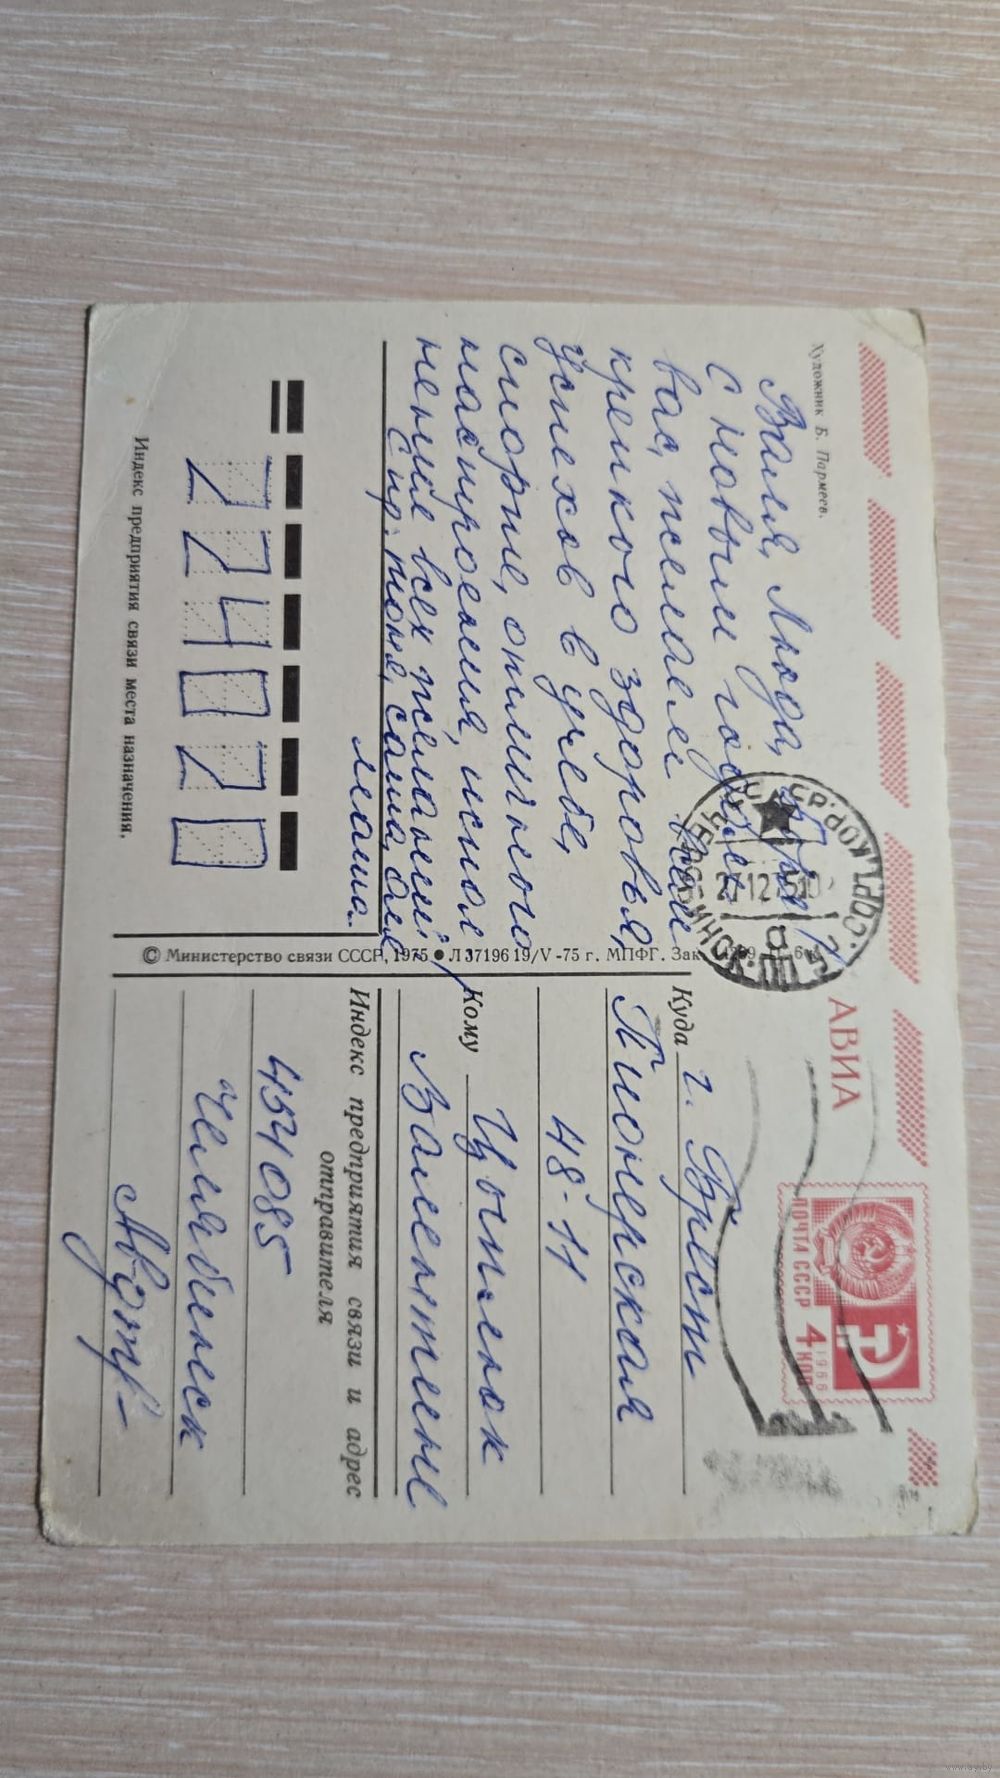 Художник Б. Пармеев.
Валя, Люда,
С Новым годом
вас, желаем вам
крепкого здоровья,
успехов в учебе,
спорте, отличного
настроения, испол
нения всех желаний!
С пр. Тоня, Саша, Оля
Маша.
224020
Индекс предприятия связи места назначения.
© Министерство связи СССР, 1975 ● Л 37196 19/V -75 г. МПФГ. Зак.
АВИА
ПОЧТА СССР 4 КОП
1966
Куда г. Брест
Пионерская
48-11
Кому Цыпленок
Валентине
Индекс предприятия связи и адрес
отправителя
454085
Челябинск